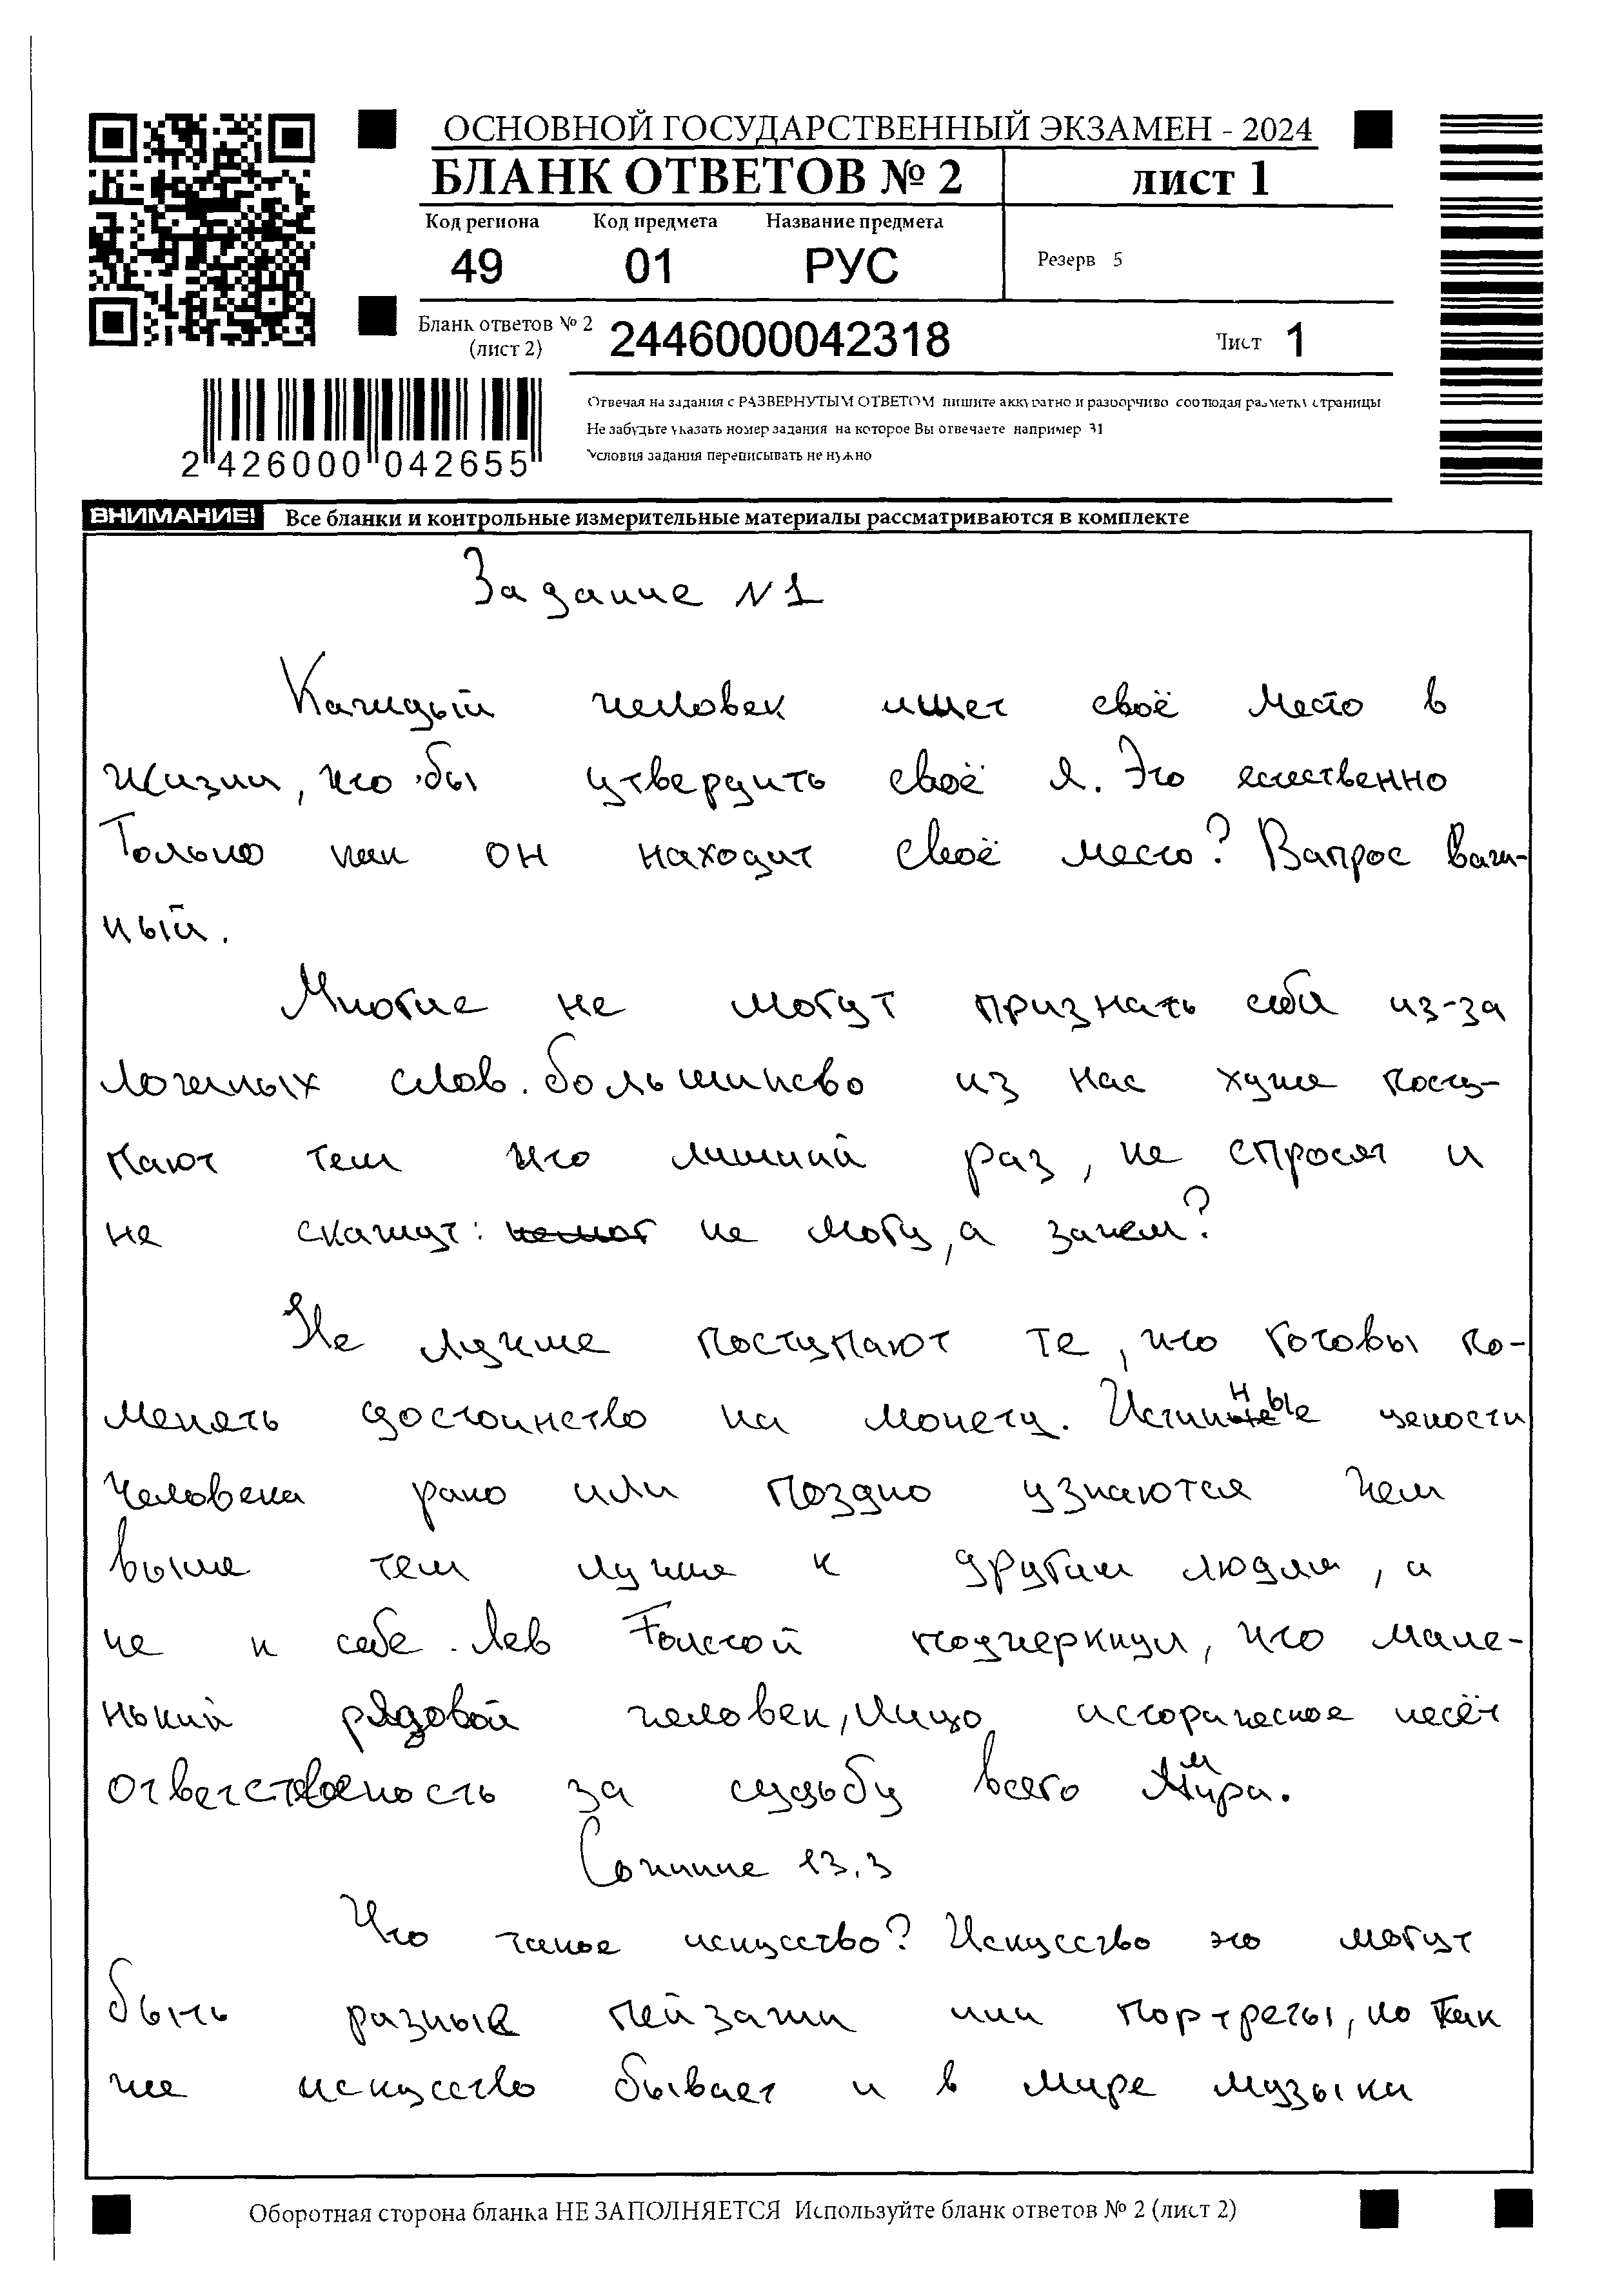 ОСНОВНОЙ ГОСУДАРСТВЕННЫЙ ЭКЗАМЕН - 2024
БЛАНК ОТВЕТОВ № 2
лист 1
Код региона Код предмета Название предмета
49 01 РУС
Резерв 5
Бланк ответов № 2
(лист 2)
2446000042318
Лист 1
2 426000 042655
Отвечая на задания с РАЗВЕРНУТЫМ ОТВЕТОМ пишите аккуратно и разборчиво соблюдая разметку страницы
Не забудьте указать номер задания на которое Вы отвечаете например 31
Условия задания переписывать не нужно
ВНИМАНИЕ! Все бланки и контрольные измерительные материалы рассматриваются в комплекте
Задание №1
Каждый человек ищет своё место в
жизни, что бы утвердить своё я. Это естественно
Только как он находит своё место? Вапрос важ-
ный.
Многие не могут признать себя из-за
ложных слов. большинсво из нас хуже посту-
пают тем что лишний раз, не спросят и
не скажут: не могу, а зачем?
Не лучше поступают те, что готовы по-
менять достоинство на монету. Истинные цености
человека рано или поздно узнаются чем
выше тем лучше к другим людям, а
не к себе. Лев Толстой подчеркнул, что мале-
нький рядовой человек, лицо историческое несёт
ответственость за судьбу всего мира.
Сочиние 13.3
Что такое искусство? Искусство это могут
быть разные пейзажи или портреты, но так
же искусство бывает и в мире музыки
Оборотная сторона бланка НЕ ЗАПОЛНЯЕТСЯ Используйте бланк ответов № 2 (лист 2)